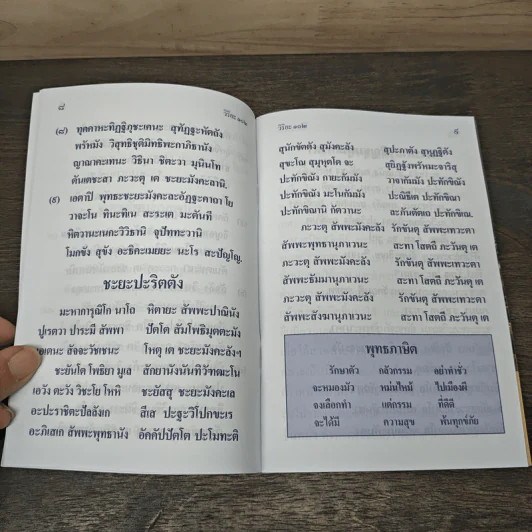 ๘
วิริยะ ๑๐๒
(๘) ทุคคาหะทิฏฐิภุชะเคนะ สุทัฏฐะหัตถัง
พรัหมัง วิสุทธิชุติมิทธิพะกาภิธานัง
ญาณาคะเทนะ วิธินา ชิตะวา มุนินโท
ตันเตชะสา ภะวะตุ เต ชะยะมังคะลานิ.
(๙) เอตาปิ พุทธะชะยะมังคะละอัฏฐะคาถา โย
วาจะโน ทินะทิเน สะระเต มะตันที
หิตวานะเนกะวิวิธานิ จุปัททะวานิ
โมกขัง สุขัง อะธิคะเมยยะ นะโร สะปัญโญ.
ชะยะปะริตตัง
มะหาการุณิโก นาโถ หิตายะ สัพพะปาณินัง
ปูเรตวา ปาระมี สัพพา ปัตโต สัมโพธิมุตตะมัง
เอเตนะ สัจจะวัชเชนะ โหตุ เต ชะยะมังคะลังฯ
ชะยันโต โพธิยา มูเล สักยานังนันทิวัฑฒะโน
เอวัง ตะวัง วิชะโย โหหิ ชะยัสสุ ชะยะมังคะเล
อะปะราชิตะปัลลังเก สีเส ปะฐะวิโปกขะเร
อะภิเสเก สัพพะพุทธานัง อัคคัปปัตโต ปะโมทะติ
วิริยะ ๑๐๒
๙
สุนักขัตตัง สุมังคะลัง สุปะภาตัง สุหุฏฐิตัง
สุขะโณ สุมุหุตโต จะ สุยิฏฐังพรัหมะจาริสุ
ปะทักขิณัง กายะกัมมัง วาจากัมมัง ปะทักขิณัง
ปะทักขิณัง มะโนกัมมัง ปะณิธีเต ปะทักขิณา
ปะทักขิณานิ กัตวานะ ละภันตัตเถ ปะทักขิเณ.
ภะวะตุ สัพพะมังคะลัง รักขันตุ สัพพะเทวะตา
สัพพะพุทธานุภาเวนะ สะทา โสตถี ภะวันตุ เต
ภะวะตุ สัพพะมังคะลัง รักขันตุ สัพพะเทวะตา
สัพพะธัมมานุภาเวนะ สะทา โสตถี ภะวันตุ เต
ภะวะตุ สัพพะมังคะลัง รักขันตุ สัพพะเทวะตา
สัพพะสังฆานุภาเวนะ สะทา โสตถี ภะวันตุ เต
พุทธภาษิต
รักษาตัว กลัวกรรม อย่าทำชั่ว
จะหมองมัว หม่นไหม้ ไปเมืองผี
จงเลือกทำ แต่กรรม ที่ดีดี
จะได้มี ความสุข พ้นทุกข์ภัย